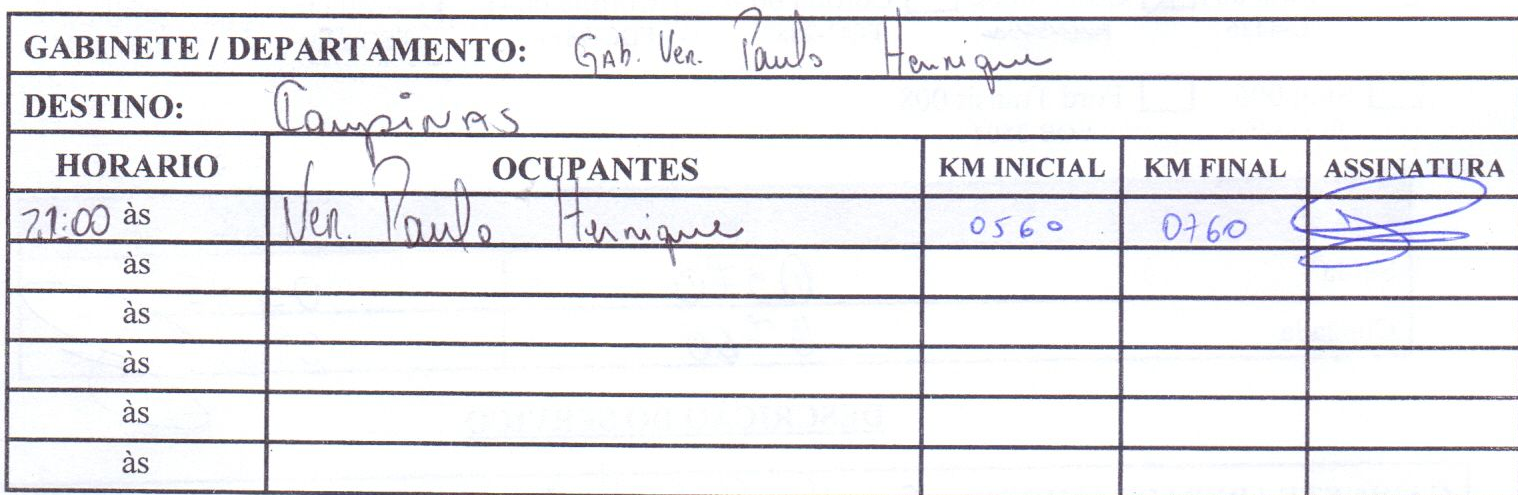 GABINETE / DEPARTAMENTO: GAb. Ver. Paulo Henrique
DESTINO: CampiNAS
HORARIO OCUPANTES KM INICIAL KM FINAL ASSINATURA
21:00 às Ver. Paulo Henrique 0560 0760
às
às
às
às
às